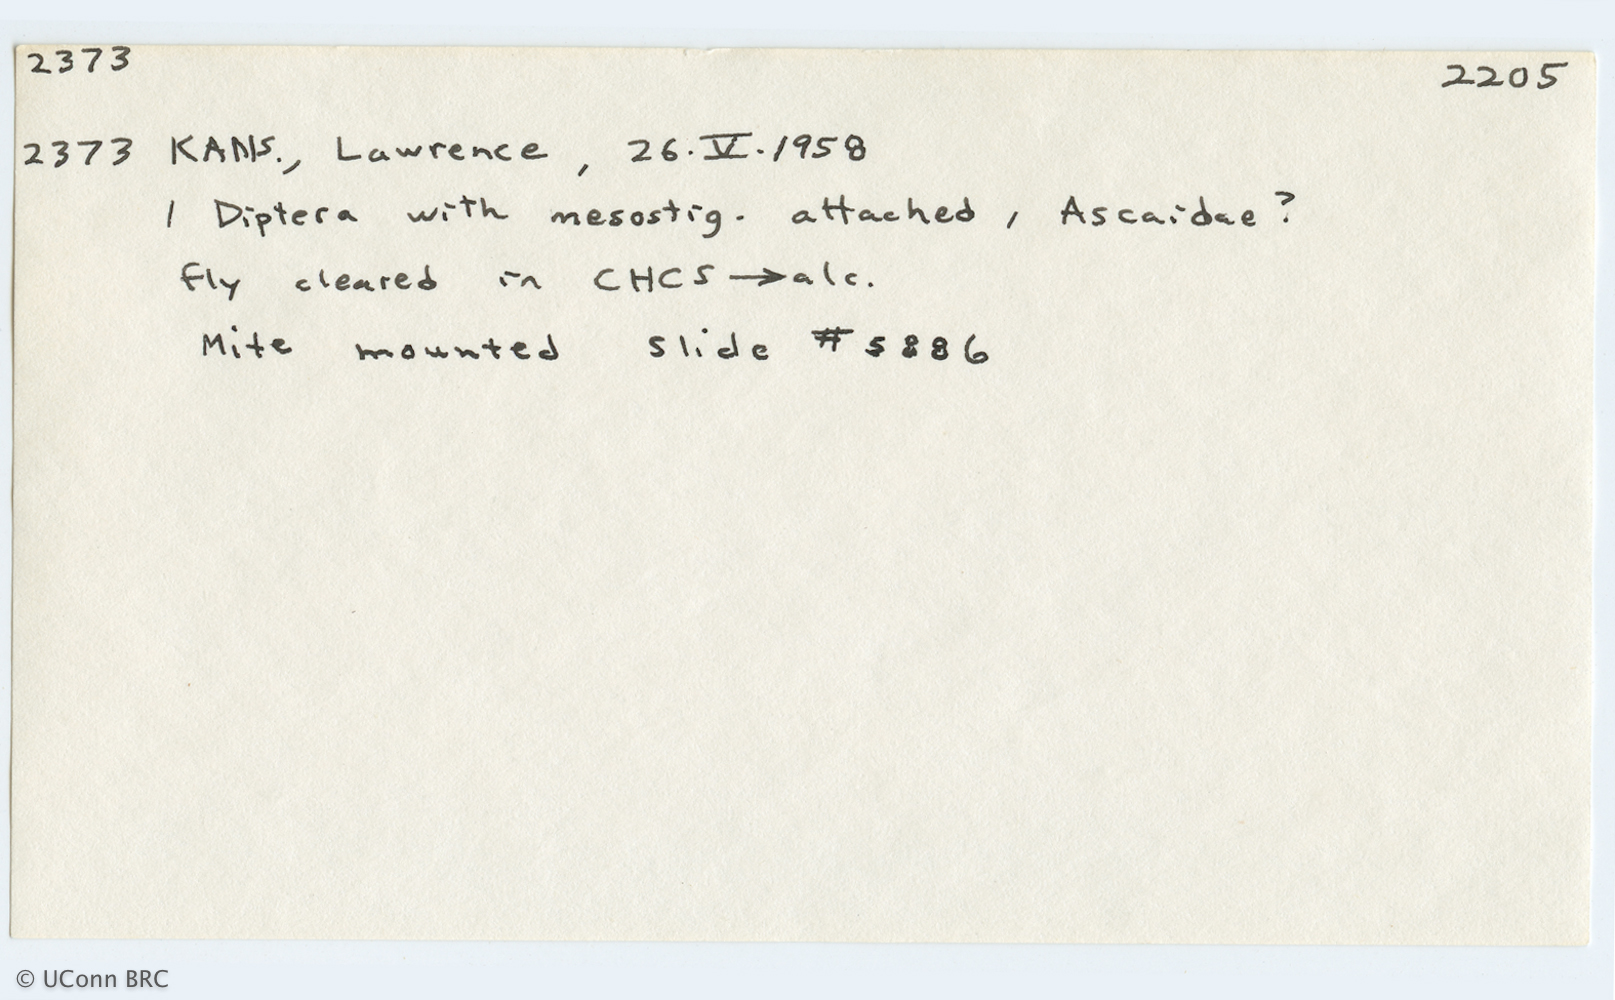 2373 2205
2373 KANS., Lawrence, 26.V.1958
1 Diptera with mesostig. attached, Ascaidae?
fly cleared in CHCS → alc.
Mite mounted slide #5886
© UConn BRC